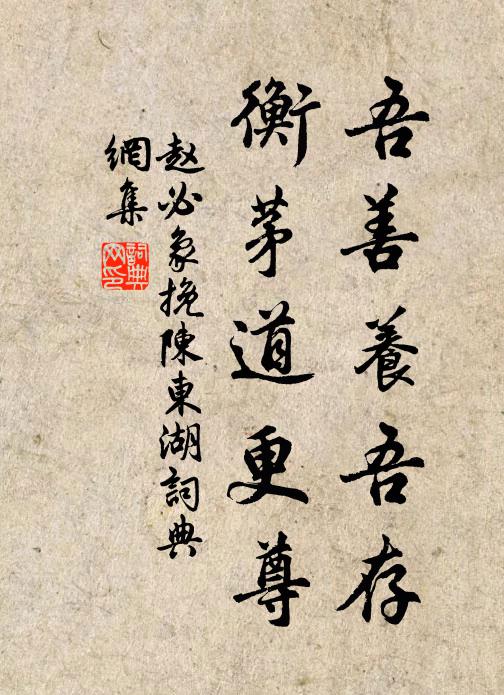 吾善養吾存
衡茅道更尊
趙必象挽陳東湖詞典
網集
詞典網印